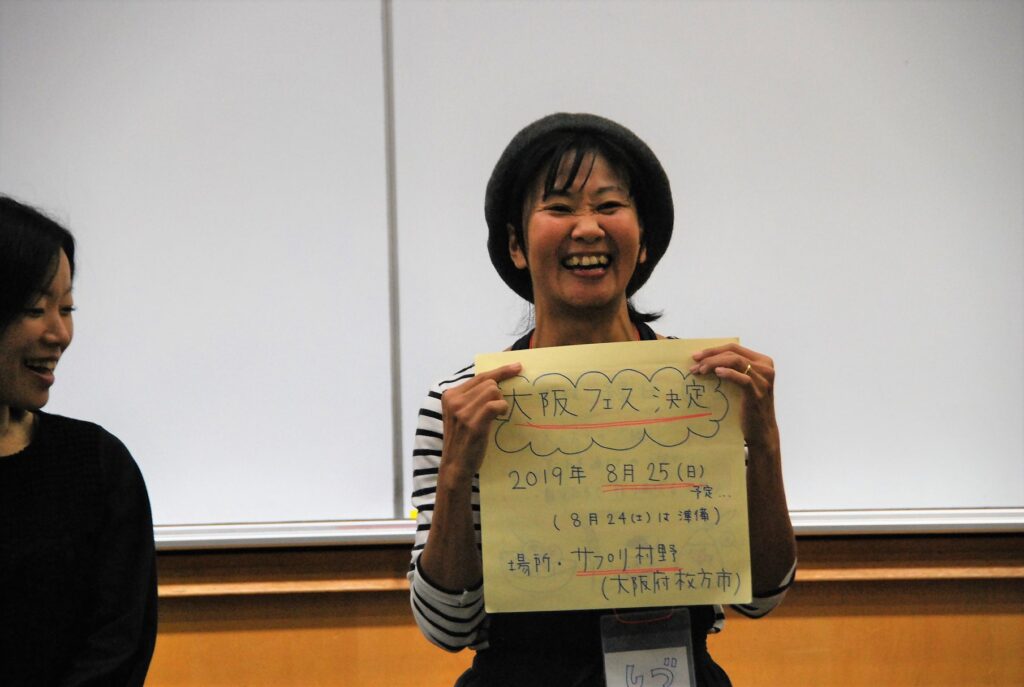 大阪フェス決定
2019年 8月25(日)
予定...
(8月24(土)は準備)
場所・サプリ村野
(大阪府枚方市)